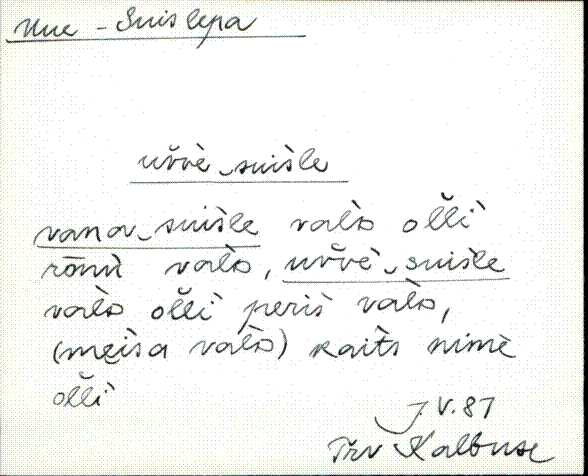 Uue - Suislepa
uvvè‿suisle
vana‿suisle valò ollì
rōmù valò, uvvè‿suisle
valò ollì peris valò,
(meisa valò) kaits nimè
ollì
J. V. 87
Trv Kalbuse